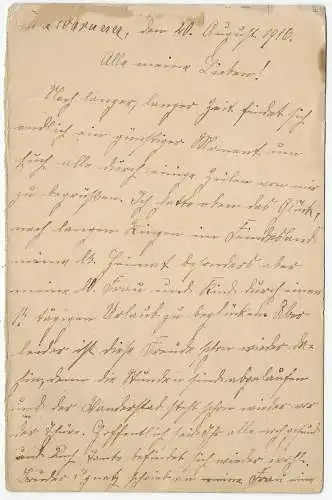 den 20. August 1916.
Alle meine Lieben!
Nach langer, langer Zeit findet sich
endlich ein günstiger Moment um
Euch alle durch einige Zeilen von mir
zu begrüßen. Ich hatte nun das Glück,
nach langem Ringen im Feindesland
meine lb. Heimat besonders aber
meine lb. Frau und Kind durch einen
tägigen Urlaub zu beglücken. Aber
leider ist diese Freude schon wieder da-
hin, denn die Stunden sind abgelaufen
und der Wanderstab steht schon wieder vor
der Thüre. Hoffentlich seid Ihr alle
und auch Tante befindet sich wieder wohl.
Bruder Ignatz schrieb an meine Frau